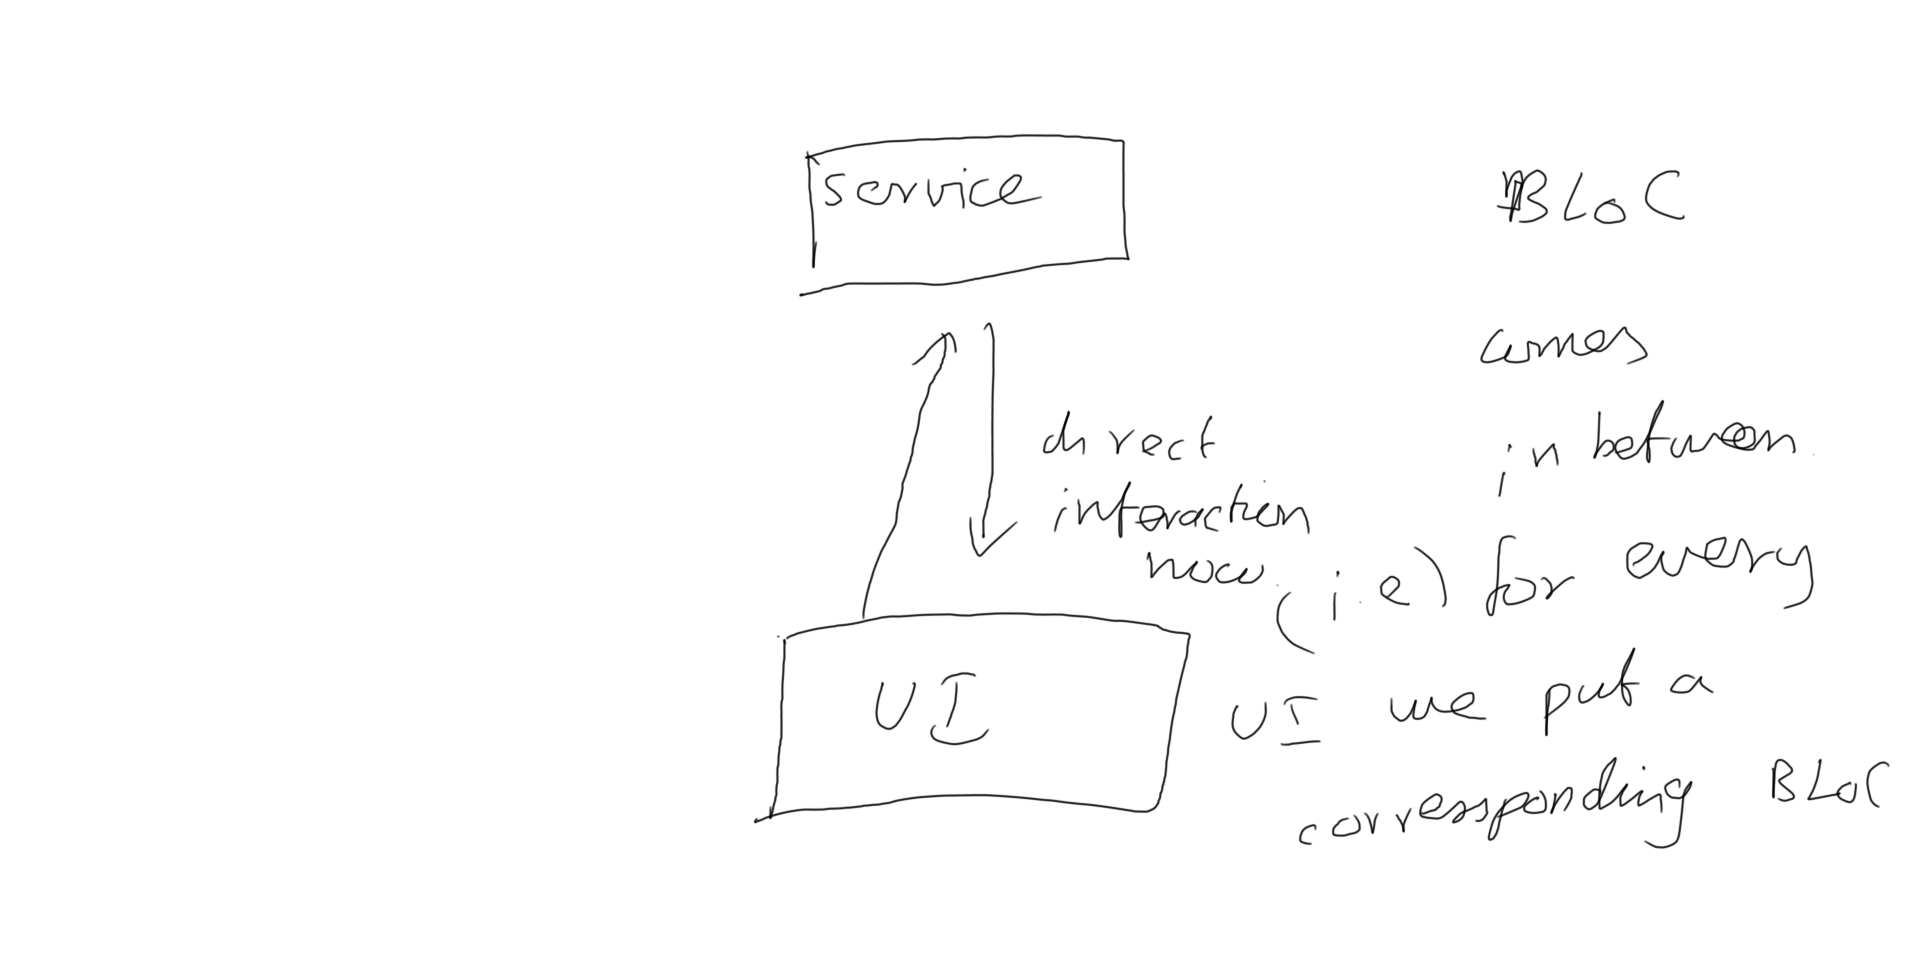 service
direct
interaction
now
UI
BLoC
comes
in between
(i.e) for every
UI we put a
corresponding BLoC